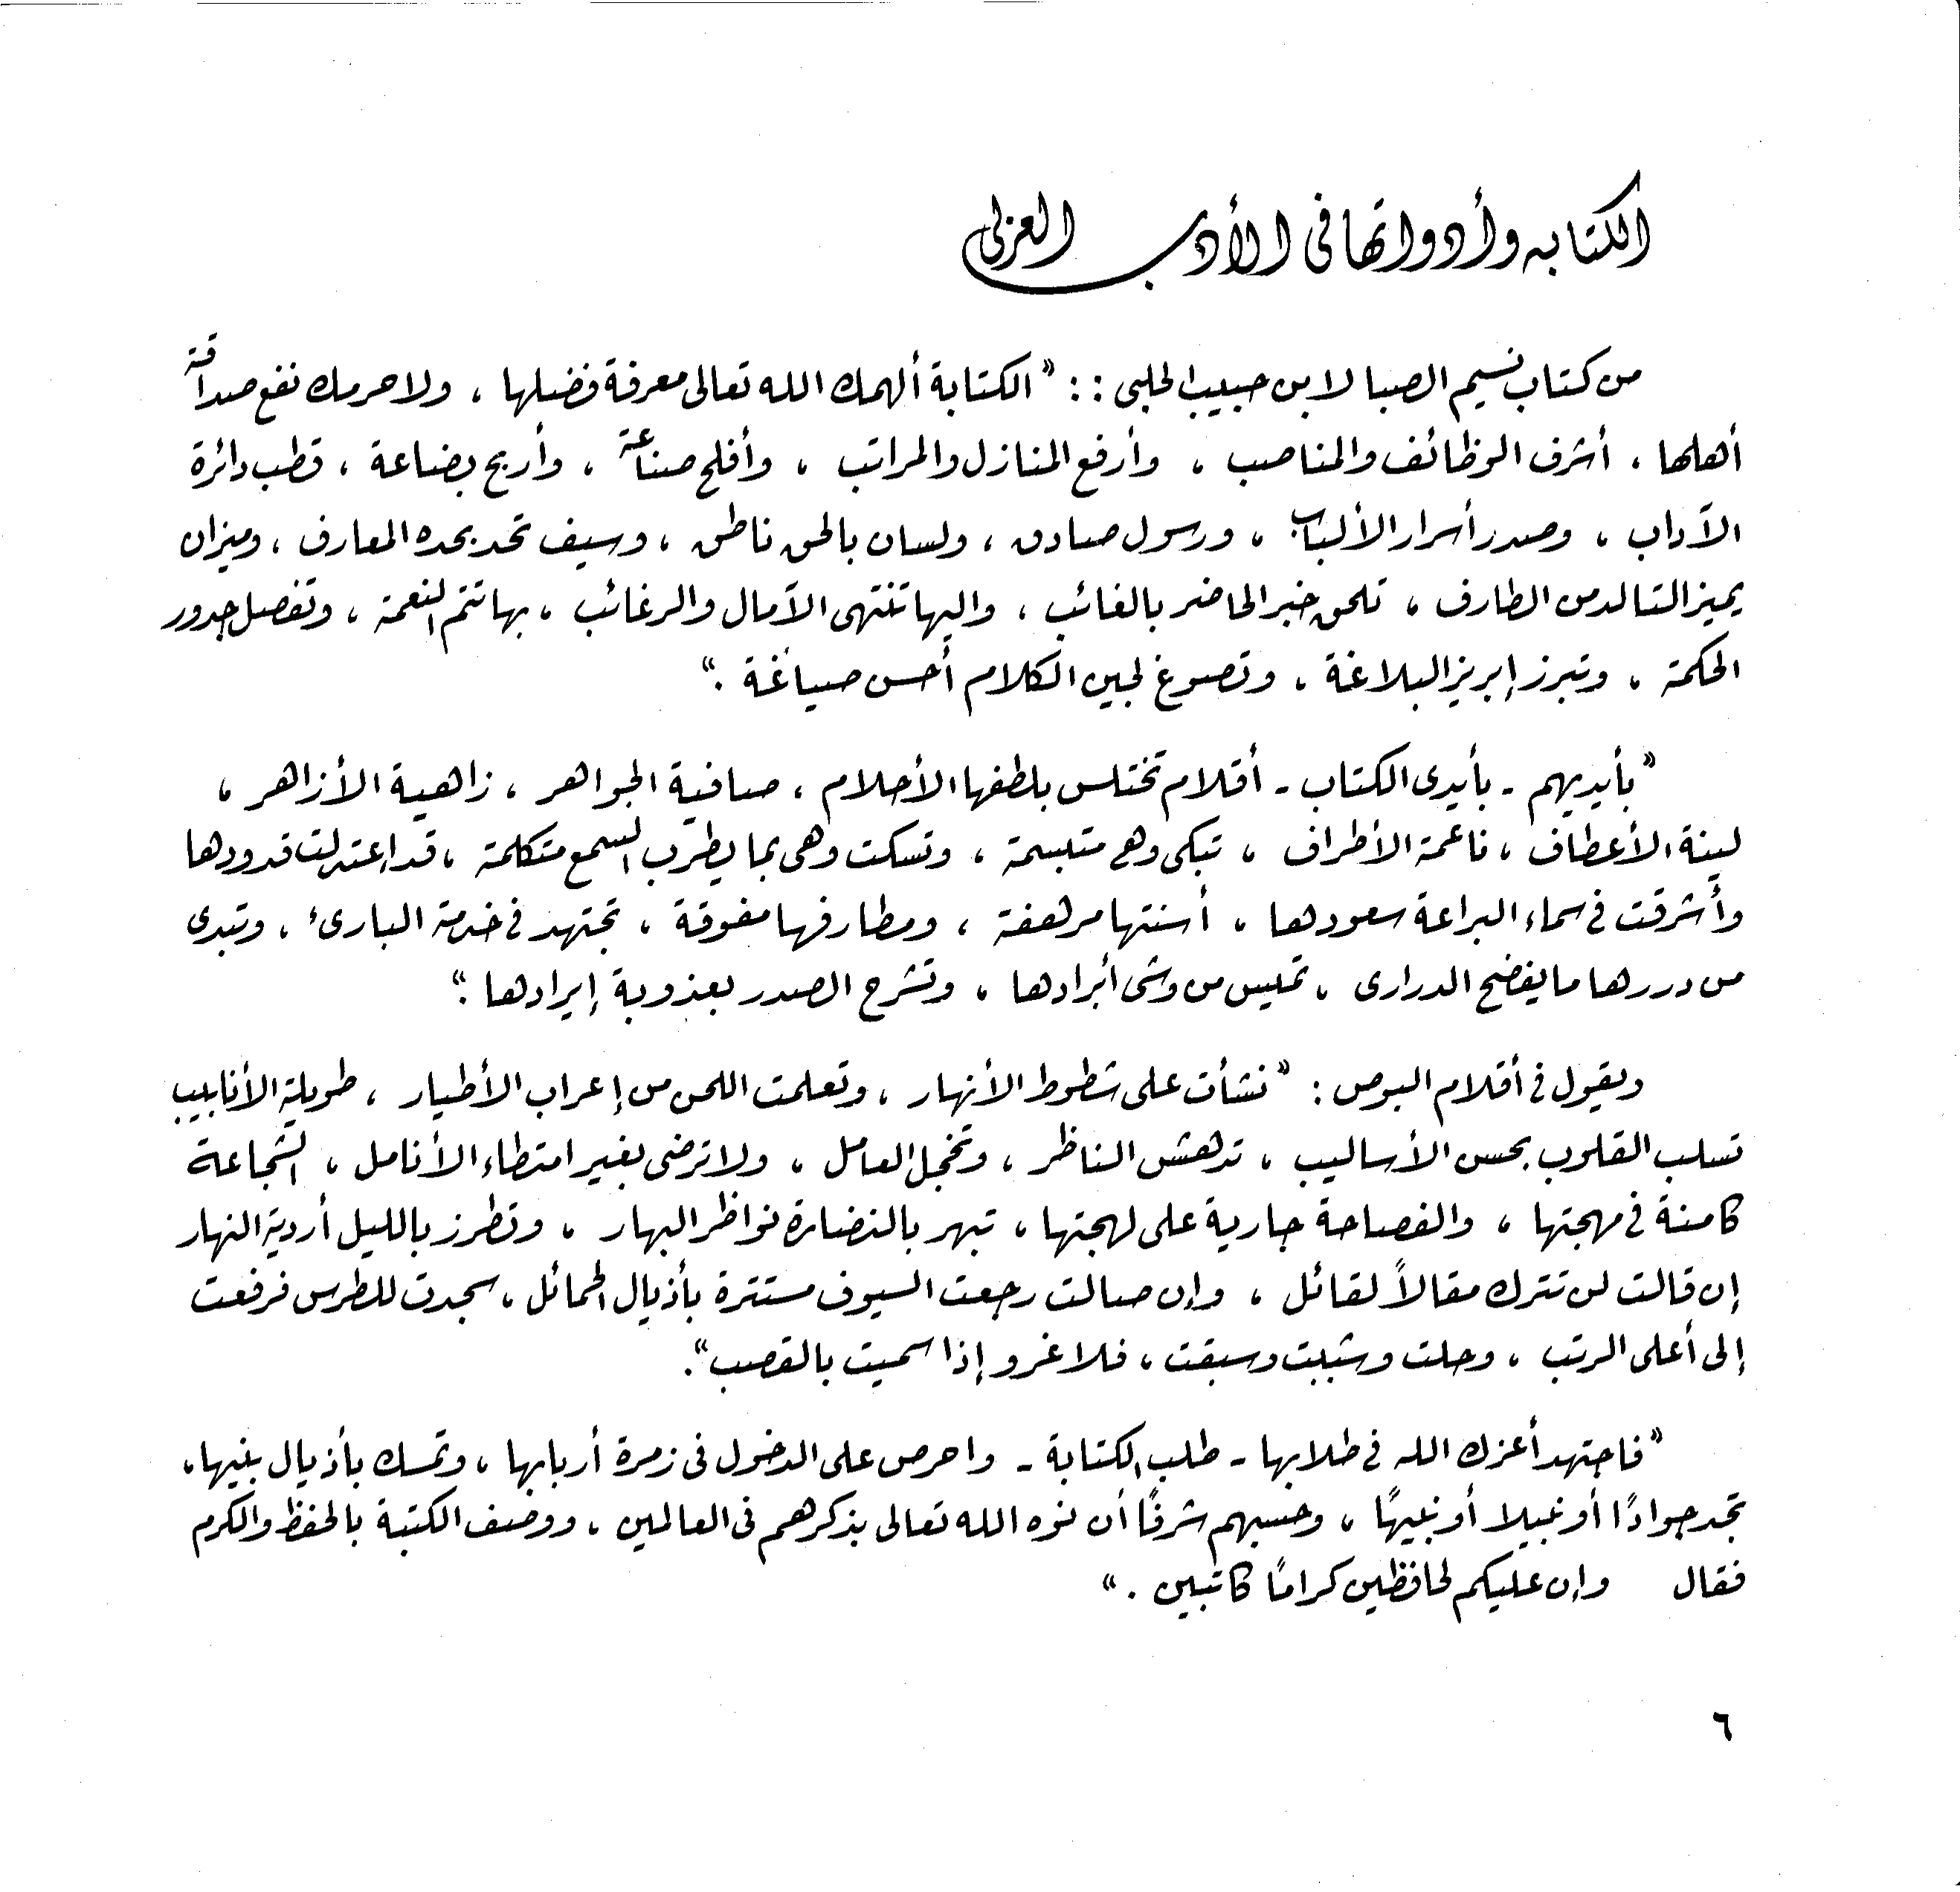 الكتابه وأدواتها فى الأدب العربى
من كتاب نسيم الصبا لابن حبيب الحلبى :: "الكتابة ألهمك الله تعالى معرفة فضلها ، ولا حرمك نفع صداقة
أهلها ، أشرف الوظائف والمناصب ، وأرفع المنازل والمراتب ، وأفلح صناعة ، وأربح بضاعة ، قطب دائرة
الآداب ، وصدر أسرار الألباب ، ورسول صادق ، ولسان بالحق ناطق ، وسيف تحد بحده المعارف ، وميزان
يميز التالد من الطارف ، تلحق خبر الحاضر بالغائب ، واليها تنتهى الآمال والرغائب ، بها تتم النعمة ، وتفصل جدور
الحكمة ، وتبرز إبريز البلاغة ، وتصوغ لجين الكلام أحسن صياغة ."
"بأيديهم - بأيدى الكتاب - أقلام تختلس بلطفها الأحلام ، صافية الجواهر ، زاهية الأزاهر ،
لينة الأعطاف ، ناعمة الأطراف ، تبكى وهى متبسمة ، وتسكت وهى بما يطرب السمع متكلمة ، قد إعتدلت قدودها
وأشرقت فى سماء البراعة سعودها ، أسنتها مرهفة ، ومطارفها مفوقة ، تجتهد فى خدمة البارئ ، وتبدى
من دررها ما يفضح الدرارى ، تميس من وشى أبرادها ، وتشرح الصدر بعذوبة إيرادها ."
ويقول فى أقلام البوص : "نشأت على شطوط الأنهار ، وتعلمت اللحن من إعراب الأطيار ، طويلة الأنابيب
تسلب القلوب بحسن الأساليب ، تدهش الناظر ، وتخجل العامل ، ولا ترضى بغير امتطاء الأنامل ، الشجاعة
كامنة فى مهجتها ، والفصاحة جارية على لهجتها ، تبهر بالنضارة نواظر البهار ، وتطرز بالليل أردية النهار
إن قالت لن تترك مقالاً لقائل ، وإن صالت رجعت السيوف مستترة بأذيال الحمائل ، سجدت للطرس فرفعت
إلى أعلى الرتب ، وحلت وشببت وسبقت ، فلا غرو إذا سميت بالقصب ."
"فاجتهد أعزك الله فى طلابها - طلب الكتابة - واحرص على الدخول فى زمرة أربابها ، وتمسك بأذيال بنيها ،
تجد جوادًا أو نبيلا أو نبيهًا ، وحسبهم شرفًا أن نوه الله تعالى بذكرهم فى العالمين ، ووصف الكتبة بالحفظ والكرم
فقال وإن عليكم لحافظين كرامًا كاتبين ."
٦